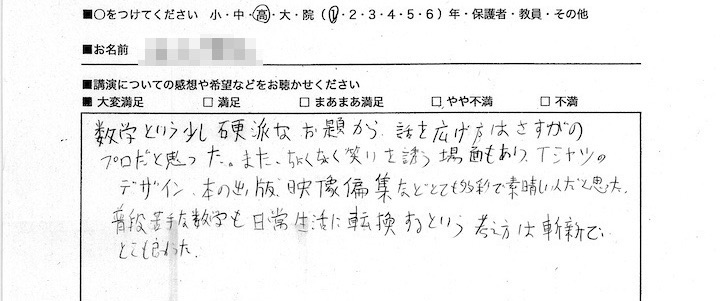 ■○をつけてください 小・中・高・大・院(1・2・3・4・5・6)年・保護者・教員・その他
■お名前
■講演についての感想や希望などをお聴かせください
■ 大変満足 □ 満足 □ まあまあ満足 □ やや不満 □ 不満
数学という少し硬派なお題から、話を広げ方はさすがの
プロだと思った。また、なく笑いを誘う場面もあり、Tシャツの
デザイン、本の出版、映像偏集などとても多彩で素晴しい人だと思た。
普段苦手な数学も日常生活に転換するという考え方は斬新で、
とても良かった。